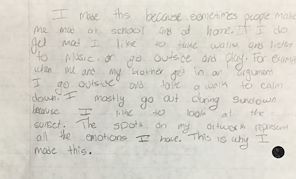 I made this because sometimes people make
me mad at school and at home. If I do
get mad I like to take walks and listen
to music or go outside and play. For example
when me and my brother get in an argument
I go outside and take a walk to calm
down. I mostly go out during sundown
because I like to look at the
sunset. The spots on my artwork represent
all the emotions I have. This is why I
made this.